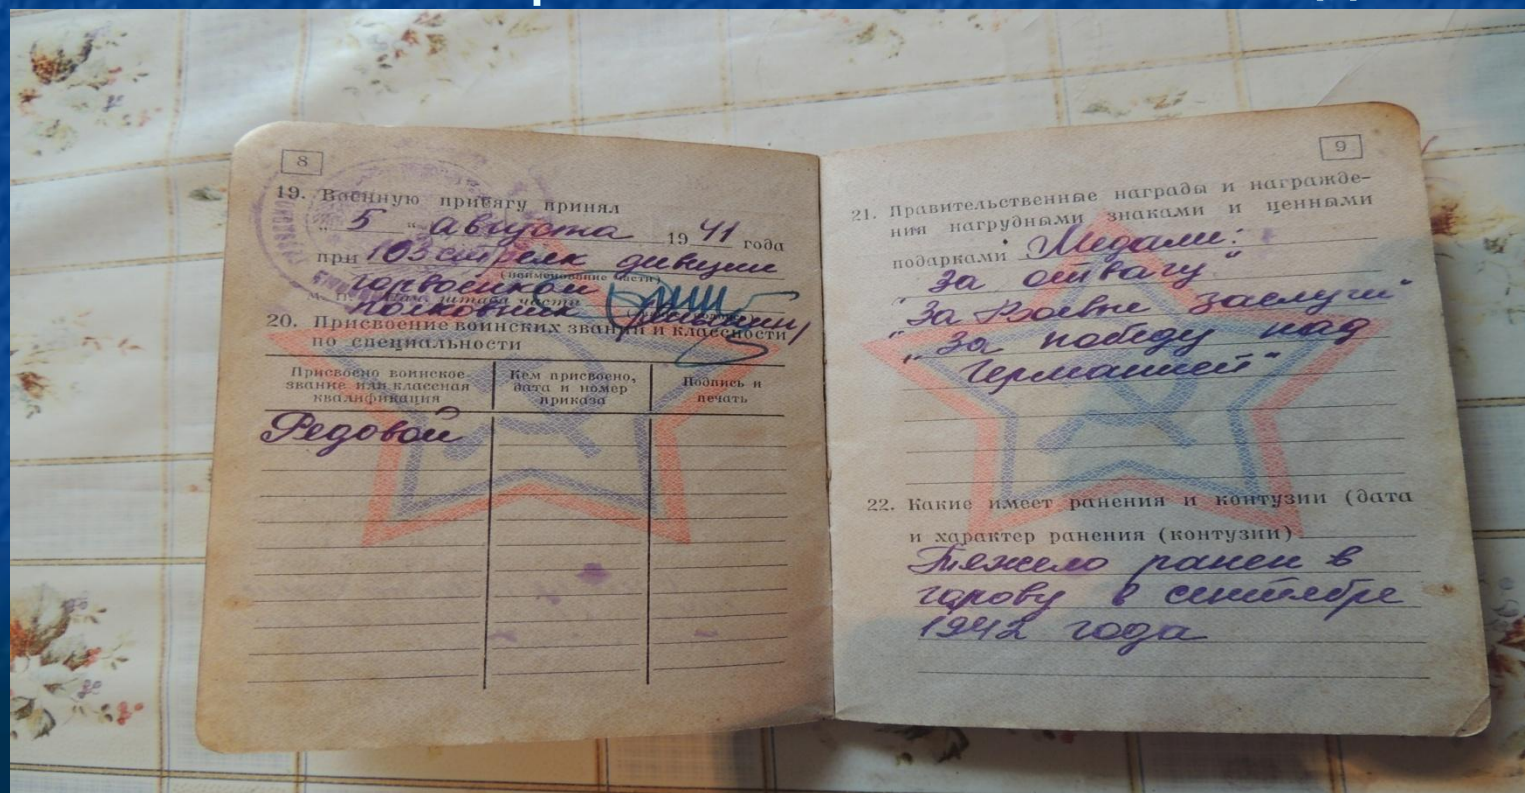 8
19. Военную присягу принял
"5" августа 1941 года
при 103 стрелк дивизии
(наименование части)
горвоенком
М. П. Нач. штаба части
полковник
20. Присвоение воинских званий и классности
по специальности
Присвоено воинское
звание или классная
квалификация
Кем присвоено,
дата и номер
приказа
Подпись и
печать
Редовой
9
21. Правительственные награды и награжде-
ния нагрудными знаками и ценными
подарками Медали:
"За отвагу"
"За боевые заслуги"
"За победу над
Германией"
22. Какие имеет ранения и контузии (дата
и характер ранения (контузии)
Тяжело ранен в
голову в сентябре
1942 года